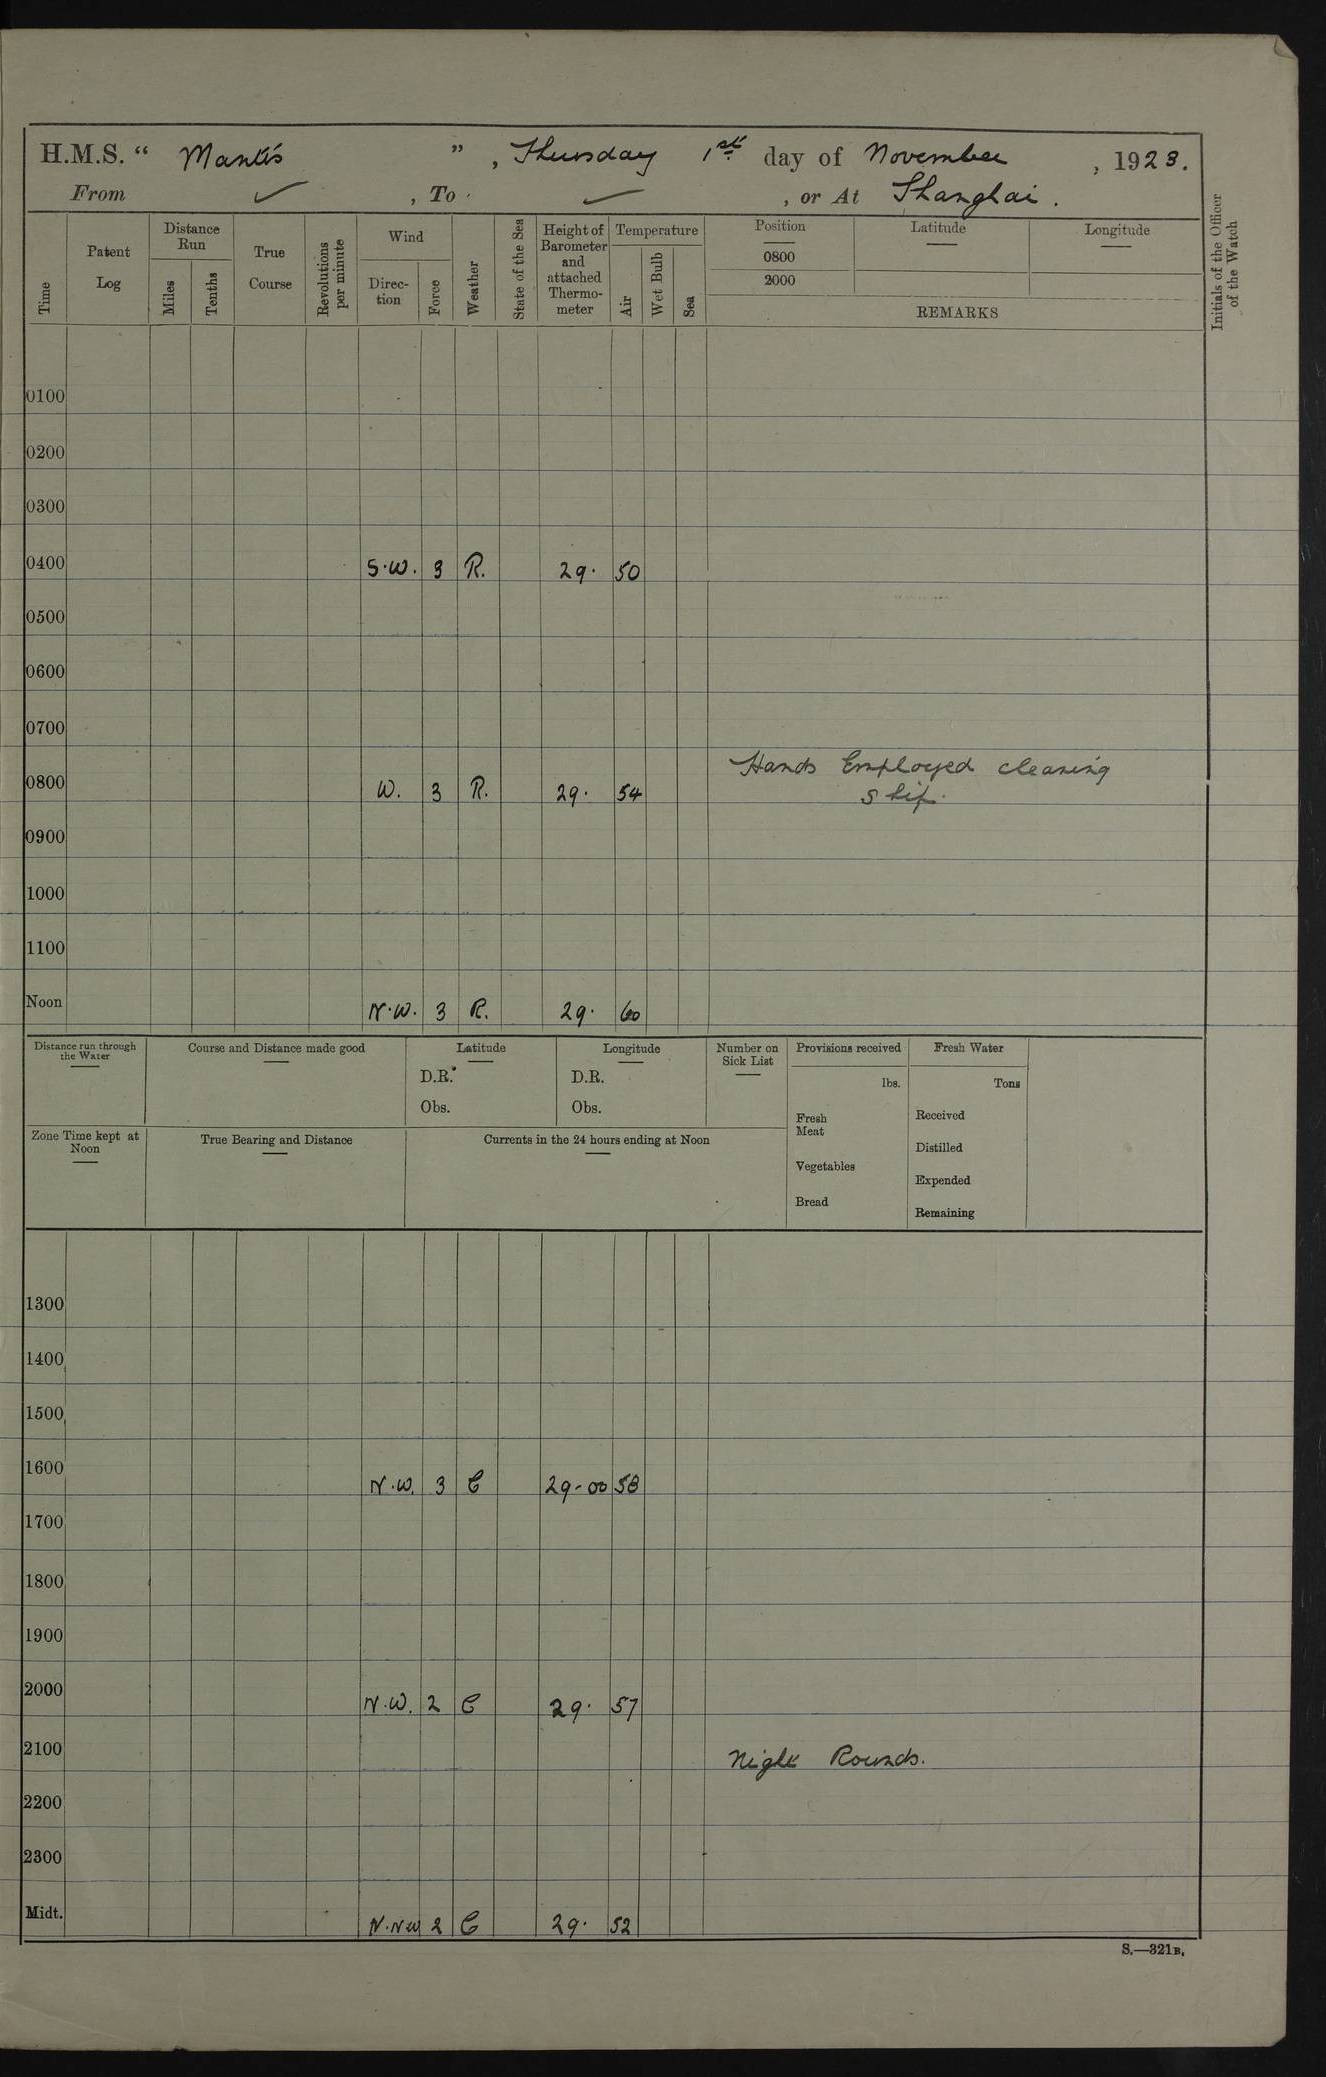 H.M.S. “ Mantis ” , Thursday 1st day of November , 1923.
From ✓ , To ✓ , or At Shanghai .
Time Patent Log Distance Run Miles Tenths True Course Revolutions per minute Wind Direc- tion Force Weather State of the Sea Height of Barometer and attached Thermo- meter Temperature Air Wet Bulb Sea Position Latitude Longitude Initials of the Officer of the Watch
0800
2000
REMARKS
0100
0200
0300
0400 S.W. 3 R. 29. 50
0500
0600
0700
Hands Employed cleaning
0800 W. 3 R. 29. 54 Ship.
0900
1000
1100
Noon N.W. 3 R. 29. 60
Distance run through the Water Course and Distance made good Latitude Longitude Number on Sick List Provisions received Fresh Water
D.R. D.R. lbs. Tons
Obs. Obs. Fresh Meat Received
Zone Time kept at Noon True Bearing and Distance Currents in the 24 hours ending at Noon Distilled
Vegetables Expended
Bread Remaining
1300
1400
1500
1600 N.W. 3 C 29-00 58
1700
1800
1900
2000 N.W. 2 C 29. 57
2100 Night Rounds.
2200
2300
Midt. N.NW 2 C 29. 52
S.—321B.